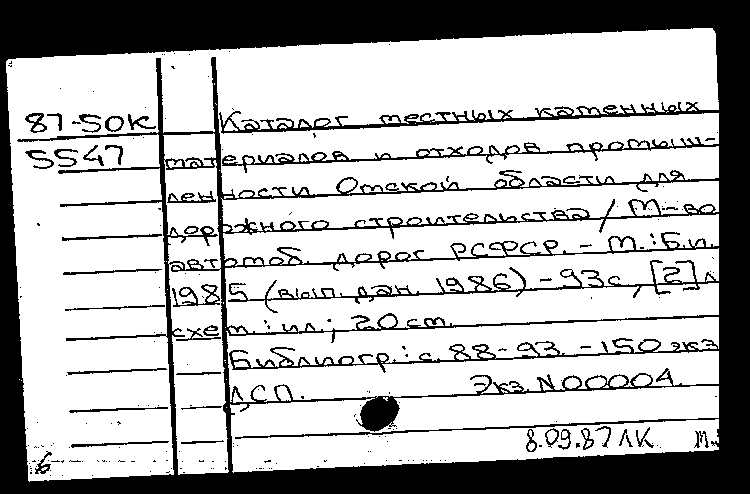 87-5ОК Каталог местных каменных
5547 материалов и отходов промыш-
ленности Омской области для
дорожного строительства / М-во
автомоб. дорог РСФСР. - М.: Б.и.
1985 (вып. дан. 1986) - 93с, [2] л
схем. : ил.; 20 cm.
Библиогр.: с. 88-93. - 150 экз
ДСП. Экз. N00004.
8.09.87 ЛК М.
6